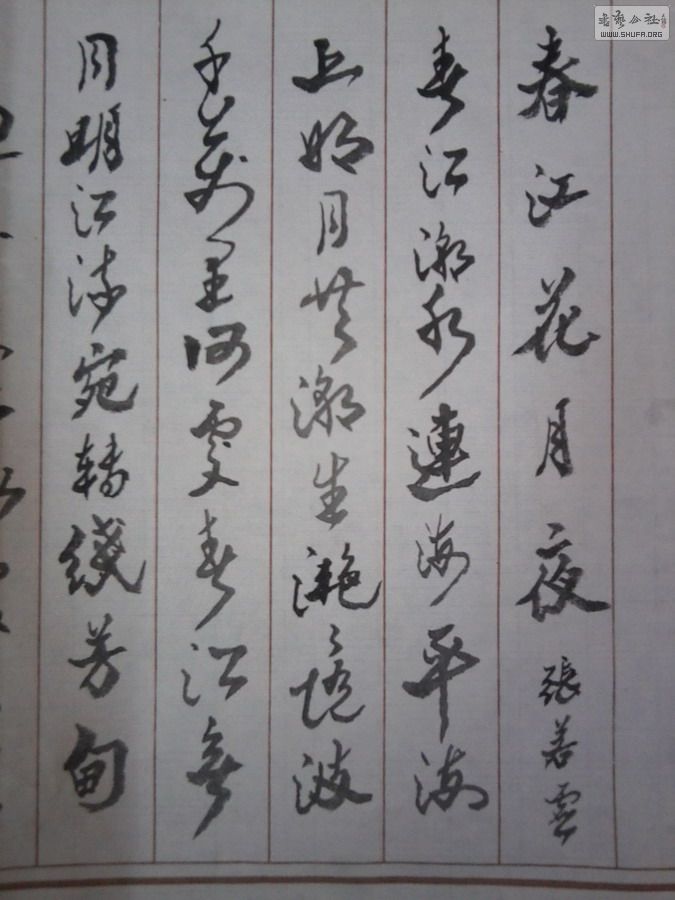 書藝公社
WWW.SHUFA.ORG
春江花月夜 張若虛
春江潮水連海平海
上明月共潮生灩々隨波
千萬里何處春江無
月明江流宛轉繞芳甸